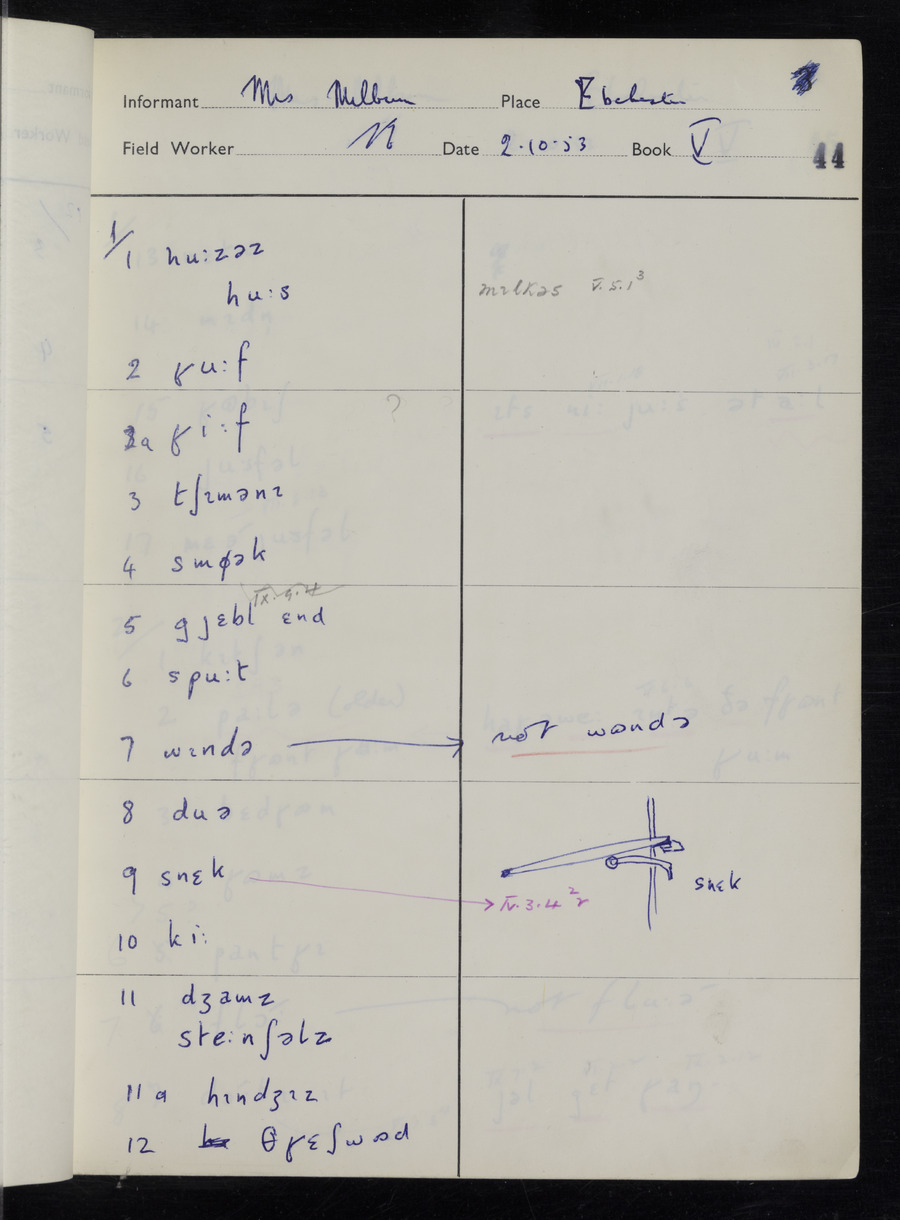 Informant Mrs Milburn Place Ebchester
Field Worker Date 2·10·53 Book V
44
1/1 hu:zəz
hu:s
mɪlkəs V.5.1³
2 ɣu:f
?
2a ɣi:f
3 tʃɪmənɪ
4 smøək
IX.9.4
5 gjɛbl ɛnd
6 spu:t
7 wɪndə not wəndə
8 duə
9 snɛk
snɛk
IV.3.4²ɤ
10 ki:
11 dʒamz
ste:nʃəlz
11a hɪndʒɪz
12 θɣɛʃwəd